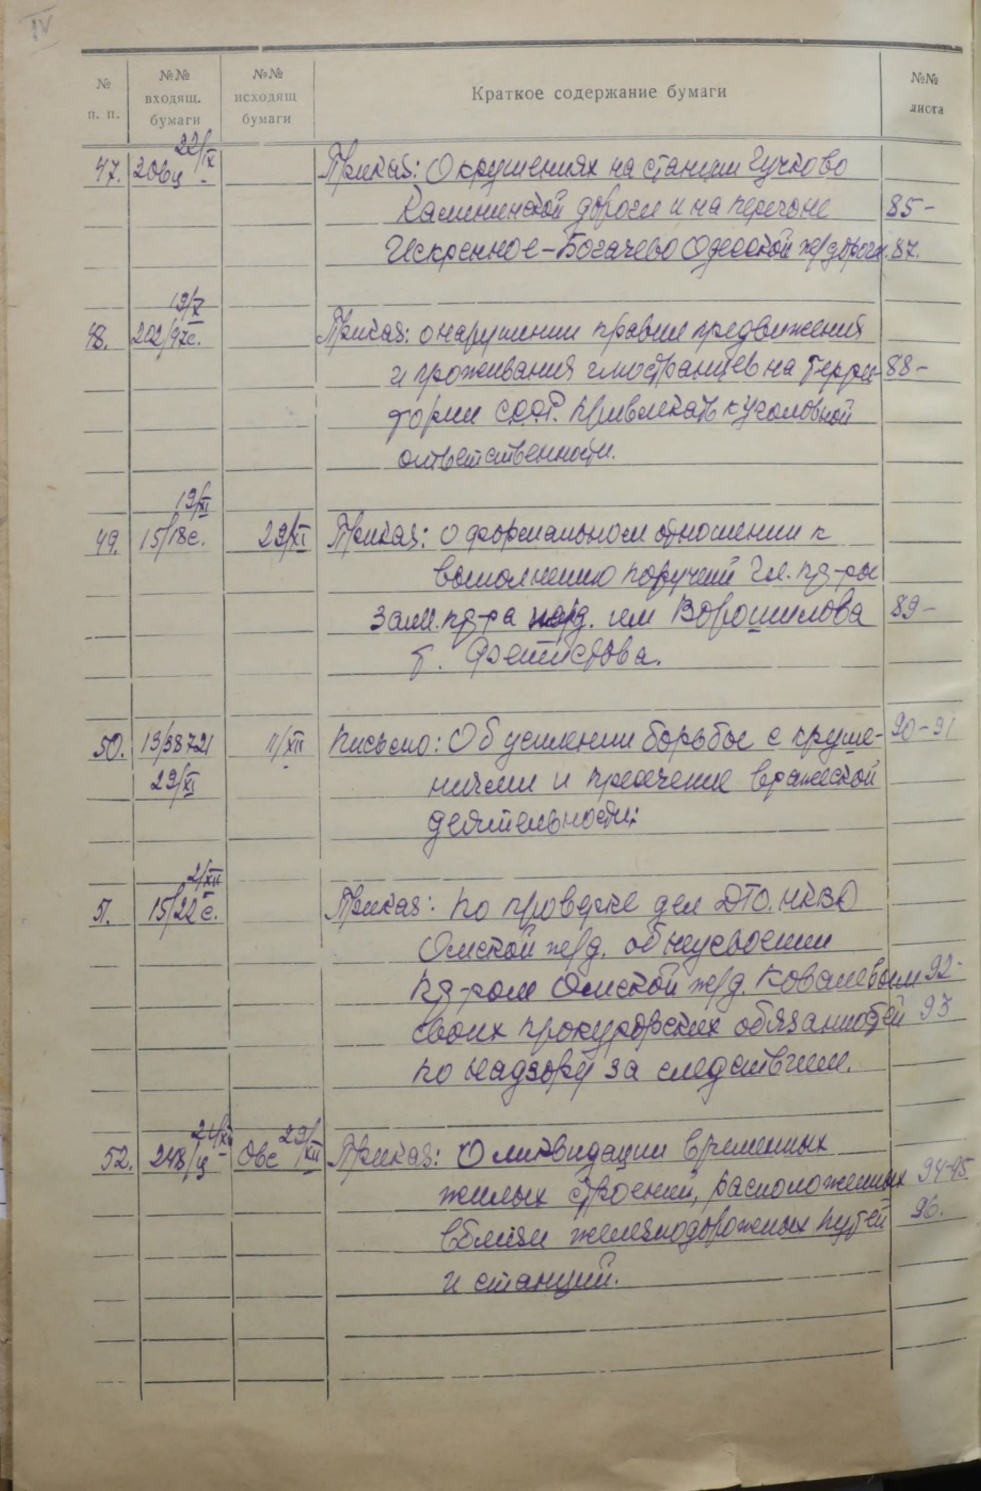 IV
№ п. п. №№ входящ. бумаги №№ исходящ бумаги Краткое содержание бумаги №№ листа
22/X
47. 20вц Приказ: О крушениях на станции Гучково
Калининской дороги и на перегоне 85-
Искренное-Богачево Одесской ж/дороги. 87.
19/X
48. 202/97с. Приказ: о нарушении правил предвижения
и проживания иностранцев на терри- 88-
тории СССР. привлекать к уголовной
ответственности.
19/XI
49. 15/18с. 29/XI Приказ: о формальном отношении к
выполнению поручений Гл. пр-ра
зам. пр-ра ж/д. им Ворошилова 89-
т. Феттистова.
50. 13/38721 11/XII Письмо: Об усилении борьбы с круше- 90-91
29/XI ниями и пресечение вражеской
деятельности:
2/XII
51. 15/22с. Приказ: по проверке дел ДТО. НКВД
Омской ж/д. об неусвоении
пр-ром Омской ж/д. Ковалевым 92-
своих прокурорских обязанностей 93
по надзору за следствием.
21/XII 29/XII
52. 248/ц Овс Приказ: О ликвидации временных
жилых строений, расположенных 94-95.
вблизи железнодорожных путей 96.
и станций.